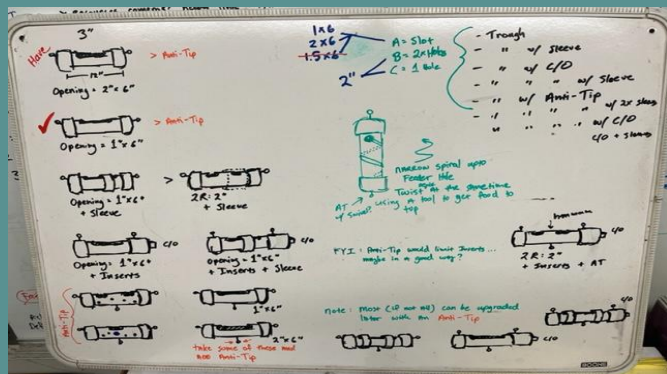 Have
3"
> Anti-Tip
12"
Opening = 2" x 6"
> Anti-Tip
Opening = 1" x 6"
Opening = 1" x 6"
+ Sleeve
>
2R: 2"
+ Sleeve
c/o
Opening = 1" x 6"
+ Inserts
c/o
Opening = 1" x 6"
+ Inserts + Sleeve
Anti-Tip
1" x 6"
2" x 6"
take some of these and
Anti-Tip
1x6
2x6
1.5x6
2"
A = Slot
B = 2x Holes
C = 1 Hole
- Trough
- " w/ Sleeve
- " w/ C/O
- " " " w/ Sleeve
- " w/ Anti-Tip
- " " " " w/ 2x
" " " " w/ C/O
C/O +
narrow spiral upto
Feeder Hole
Twist At the same time
using A tool to get food to
top
AT
w/ Swivel
FYI: Anti-Tip would limit Inserts...
maybe in a good way?
c/o
2R: 2"
+ Inserts + AT
Note: Most (if not all) can be upgraded
later with an Anti-Tip
c/o
c/o
BOONE